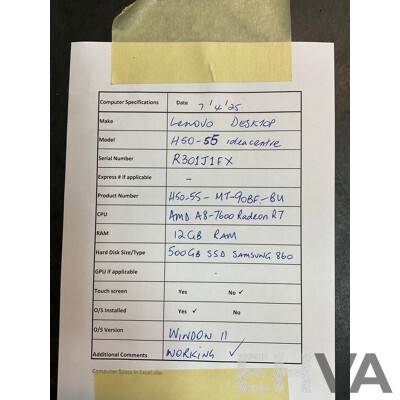 Computer Specifications Date 7'4'25.
Make Lenovo DESKTOP
Model H50-55 ideacentre
Serial Number R301J1FX
Express # if applicable -
Product Number H50-55-MT-90BF-BU
CPU AMD A8-7600 Radeon R7
RAM 12GB RAM
Hard Disk Size/Type 500GB SSD SAMSUNG 860
GPU if applicable -
Touch screen Yes No ✓
O/S Installed Yes ✓ No
O/S Version WINDON 11
Additional Comments WORKING ✓
Computer Specs in Excel.xlsx